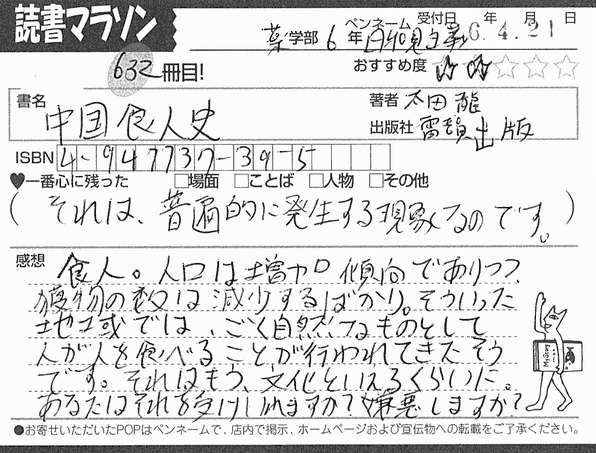 読書マラソン
ペンネーム 受付日 年 月 日
薬学部 6年 自和見主義 6.4.21
632冊目!
おすすめ度 ☆☆☆☆☆
書名 中国食人史
著者 太田龍
出版社 雷韻出版
ISBN 4-947737-39-5
♥一番心に残った □場面 □ことば □人物 □その他
(それは、普遍的に発生する現象なのです。)
感想 食人。人口は増加傾向でありつつ、
獲物の数は減少するばかり。そういった
地域では、ごく自然なものとして
人が人を食べることが行われてきたそう
です。それはもう、文化といえるくらいに。
あなたはそれを受け入れますか?嫌悪しますか?
●お寄せいただいたPOPはペンネームで、店内で掲示、ホームページおよび宣伝物への転載をご了承ください。